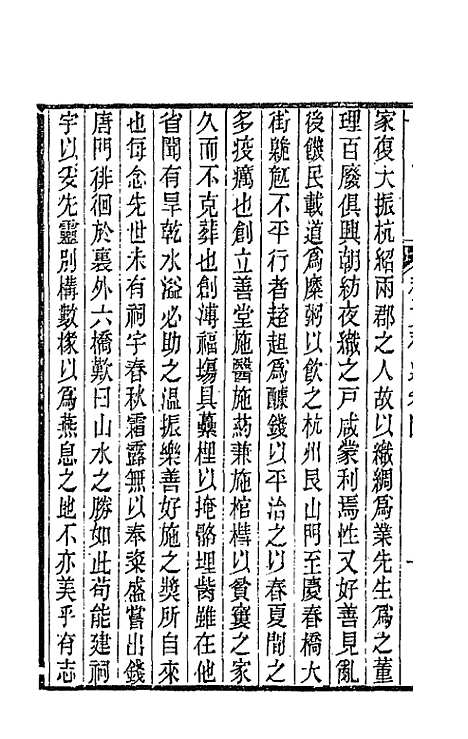 家復大振杭紹兩郡之人故以織綢爲業先生爲之董
理百廢俱興朝紡夜織之戸咸蒙利焉性又好善見亂
後饑民載道爲糜粥以飮之杭州艮山門至慶春橋大
街巍䃬不平行者趑趄爲醵錢以平治之以春夏閒之
多疫癘也創立善堂施醫施葯兼施棺槥以貧窶之家
久而不克葬也創溥福塲具虆梩以掩骼埋胔雖在他
省聞有旱乾水溢必助之温振樂善好施之奬所自來
也每念先世未有祠宇春秋霜露無以奉粢盛嘗出錢
唐門徘徊於裏外六橋歎曰山水之勝如此苟能建祠
宇以妥先靈別構數椽以爲燕息之地不亦美乎有志